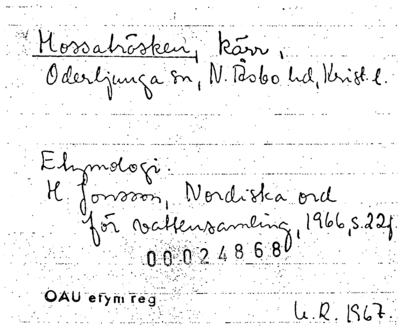 Mossaträsken, kärr,
Oderljunga sn, N. Åsbo hd, Krist. l.
Etymologi:
H Jonsson, Nordiska ord
för vattensamling, 1966, s. 22f.
00024868
OAU etym reg
U.R. 1967.